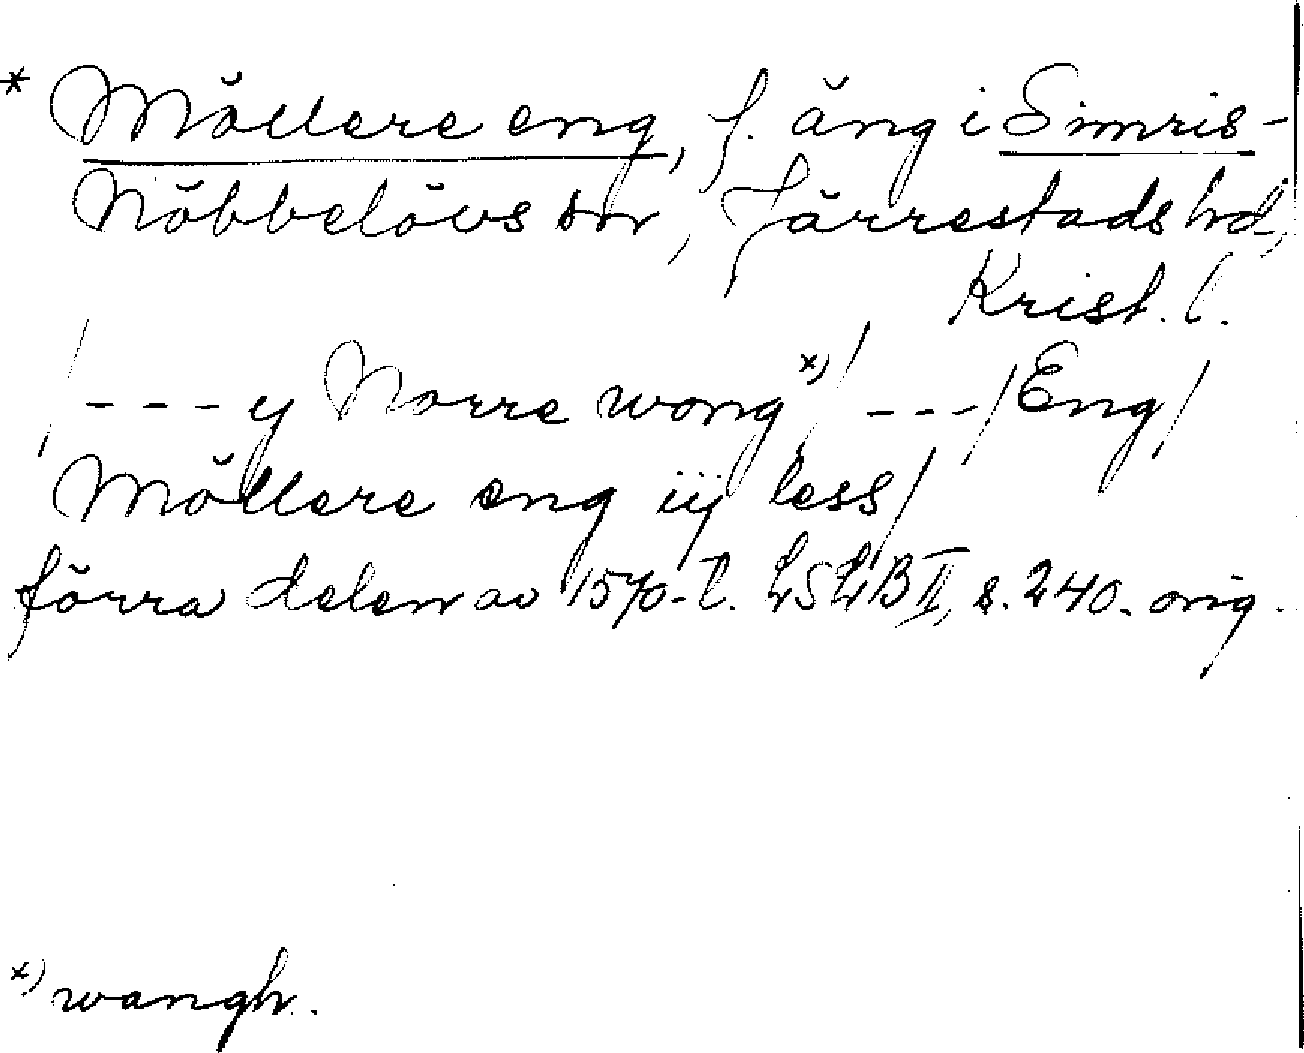 * Möllere eng, f. äng i Simris-
Nöbbelövs sn, Järrestads hd,
Krist. l.
/ - - - y Norre wong x) / - - - / Eng /
Möllere eng iij less /
förra delen av 1570-t. LSLB II, s. 240. orig.
x) wangh.